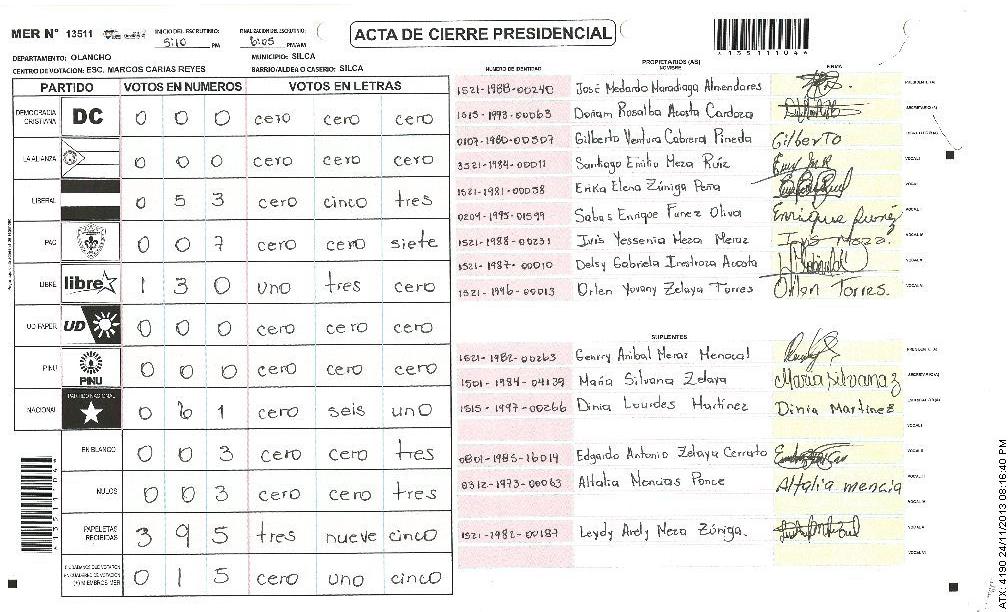 MER N° 13511 INICIO DEL ESCRUTINIO: 5:10 PM FINALIZACION DEL ESCRUTINIO: 6:05 PM/AM
ACTA DE CIERRE PRESIDENCIAL
*13511044*
DEPARTAMENTO: OLANCHO MUNICIPIO: SILCA
CENTRO DE VOTACION: ESC. MARCOS CARIAS REYES BARRIO/ALDEA O CASERIO: SILCA
PARTIDO VOTOS EN NUMEROS VOTOS EN LETRAS
DEMOCRACIA CRISTIANA DC 0 0 0 cero cero cero
LA ALIANZA 0 0 0 cero cero cero
LIBERAL 0 5 3 cero cinco tres
PAC 0 0 7 cero cero siete
LIBRE libre 1 3 0 uno tres cero
UD FAPER UD 0 0 0 cero cero cero
PINU PINU 0 0 0 cero cero cero
NACIONAL PARTIDO NACIONAL 0 6 1 cero seis uno
EN BLANCO 0 0 3 cero cero tres
NULOS 0 0 3 cero cero tres
PAPELETAS RECIBIDAS 3 9 5 tres nueve cinco
CIUDADANOS QUE VOTARON EN CUADERNO DE VOTACION (*) MIEMBROS MER 0 1 5 cero uno cinco
NUMERO DE IDENTIDAD PROPIETARIOS (AS) NOMBRE FIRMA
1521-1988-00240 José Medardo Naradiaga Almendares PRESIDENTE (A)
1615-1993-00063 Doriam Rosalba Acosta Cardoza SECRETARIO (A)
0107-1980-00507 Gilberto Ventura Cabrera Pineda Gilberto
3521-1984-00011 Santiago Emilio Meza Ruíz VOCAL I
1521-1981-00058 Erika Elena Zúniga Peña
0209-1995-01599 Sabas Enrique Funez Oliva Enrique Funez
1521-1988-00231 Ivis Yessenia Meza Meraz Ivis Meza.
1521-1987-00010 Delsy Gabriela Inestroza Acosta
1521-1996-00013 Orlen Yovany Zelaya Torres Orlen Torres.
SUPLENTES
1521-1982-00263 Genrry Anibal Meraz Menocal PRESIDENTE (A)
1501-1984-04139 María Silvana Zelaya Maria Silvana Z SECRETARIO (A)
1515-1997-00266 Dinia Lourdes Martínez Dinia Martinez
0801-1985-16014 Edgardo Antonio Zelaya Cerrato
0312-1973-00063 Altalia Mencias Ponce Altalia mencia
1521-1982-00187 Leydy Arely Meza Zúniga.
ATX: 4190 24/11/2013 08:16:40 PM